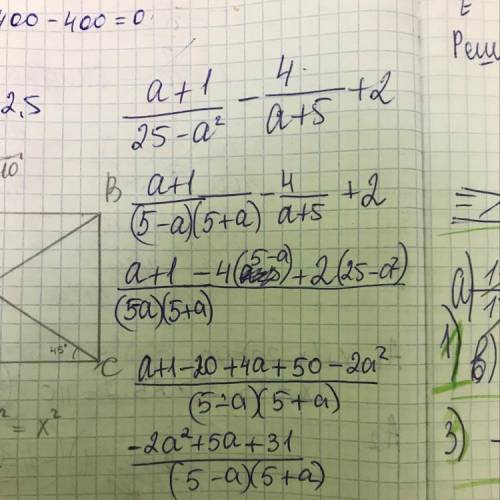 400 - 400 = 0
2,5
10
(a+1)/(25-a²) - 4/(a+5) + 2
B
(a+1)/((5-a)(5+a)) - 4/(a+5) + 2
(a+1 - 4(5-a) + 2(25-a²))/((5a)(5+a))
45°
C
(a+1-20+4a+50-2a²)/((5-a)(5+a))
² = x²
(-2a²+5a+31)/((5-a)(5+a))
Реш
а)
1)
в)
3)